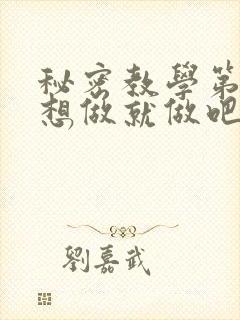 秘密教學第
想做就做吧
劉嘉武